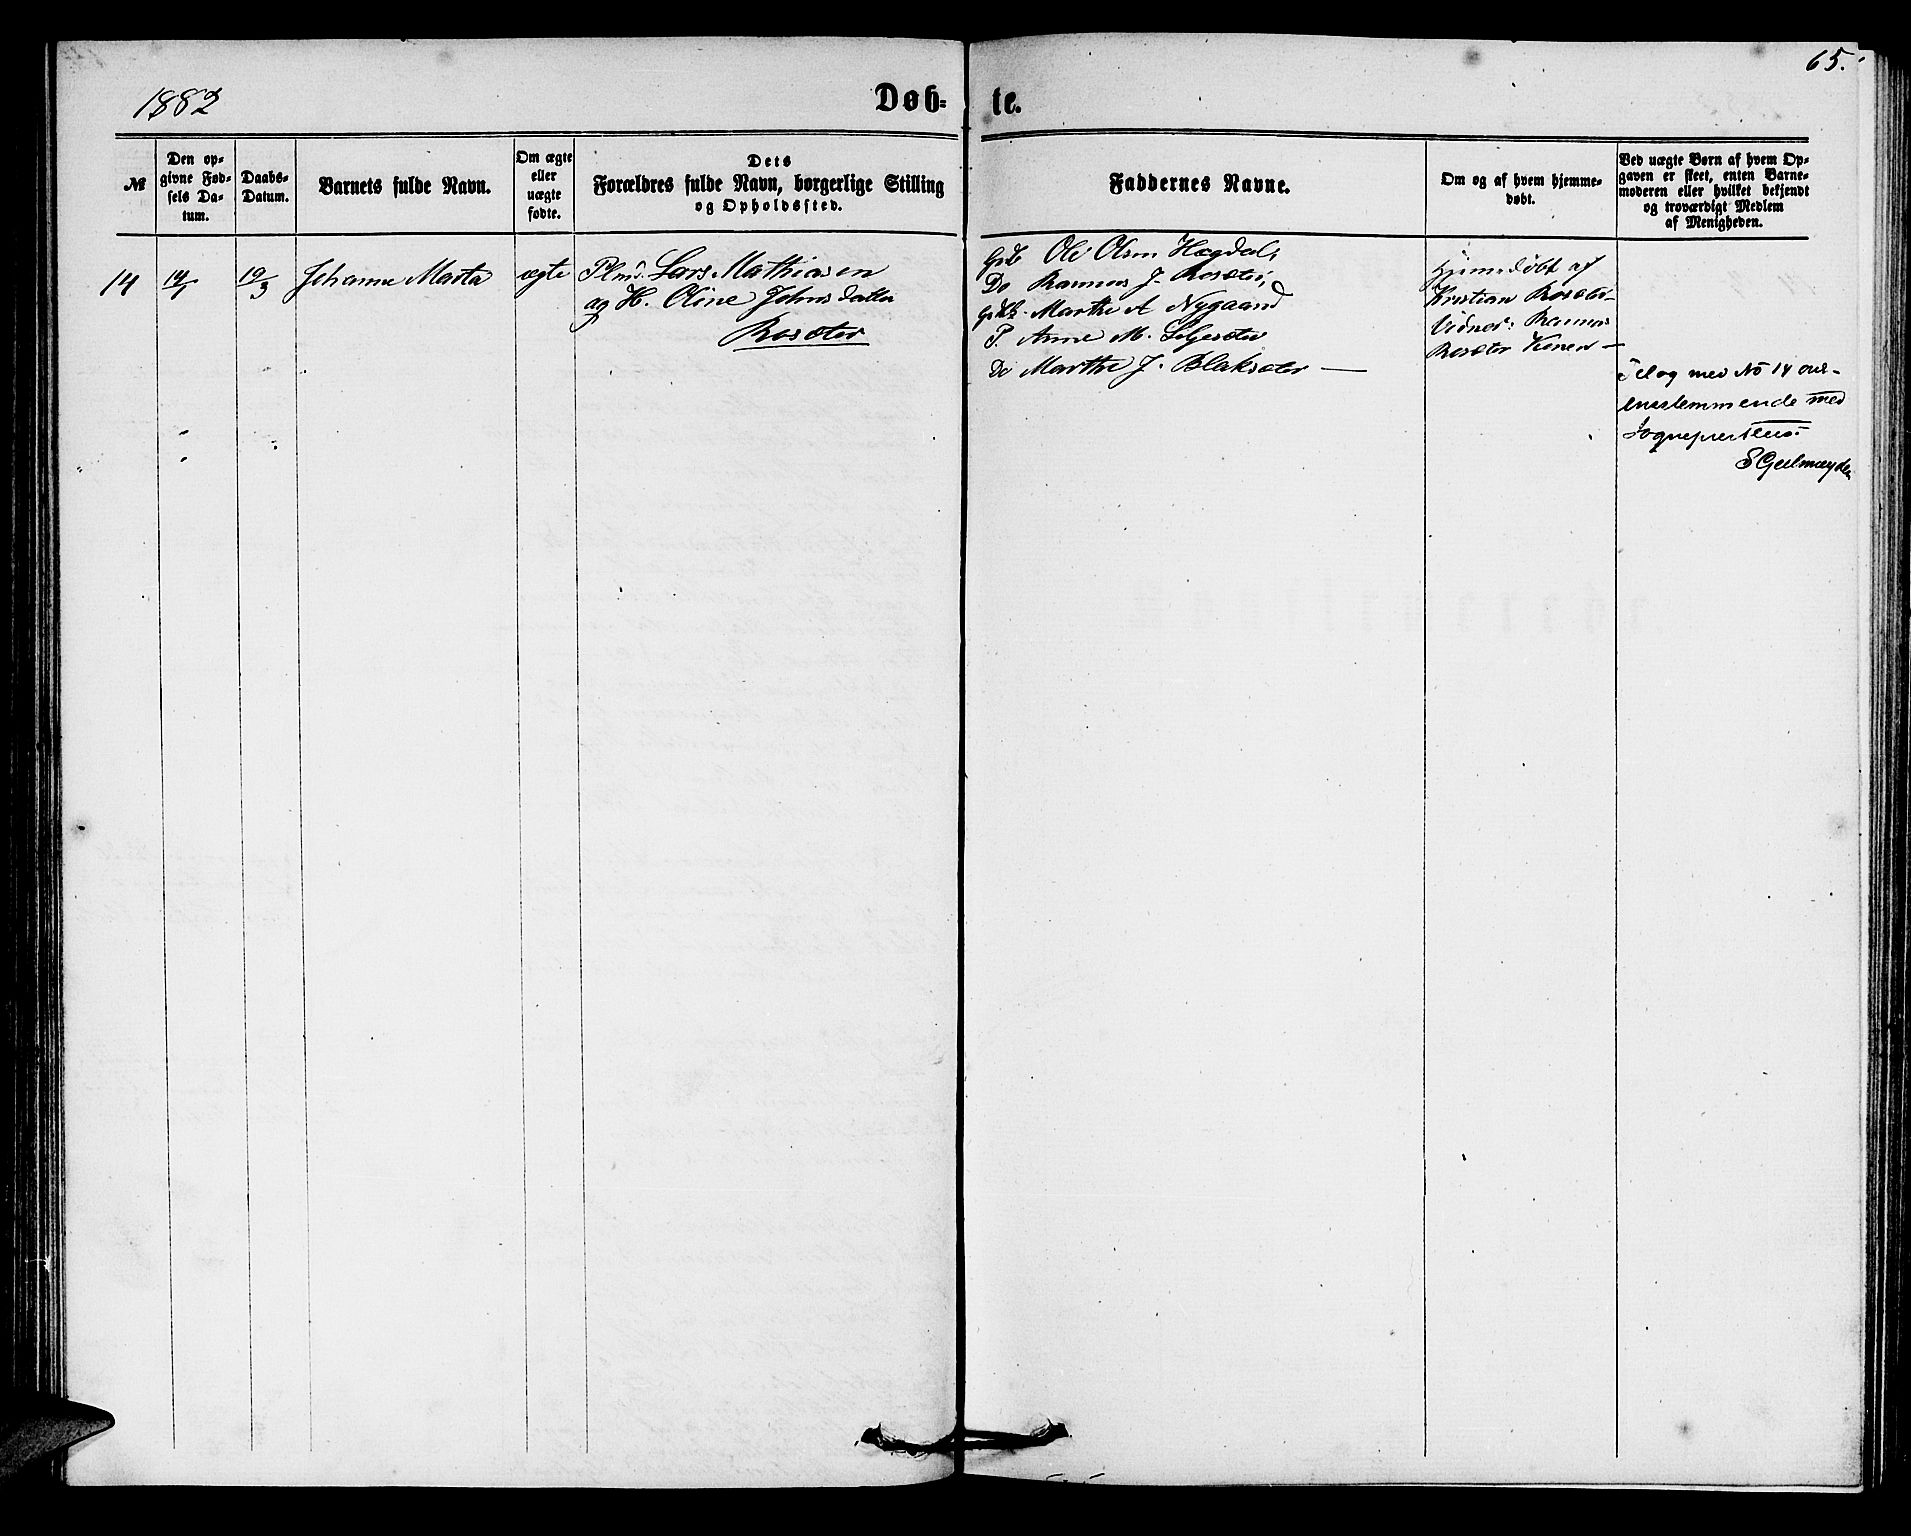 65.
1882
Døb-
te.
№
Den op-
givne Fød-
sels Da-
tum.
Daabs-
Datum.
Barnets fulde Navn.
Om ægte
eller
uægte
fødte.
Dets
Forældres fulde Navn, borgerlige Stilling
og Opholdssted.
Faddernes Navne.
Om og af hvem hjemme-
døbt.
Ved uægte Børn af hvem Op-
gaven er skeet, enten Barne-
moderen eller hvilket bekjendt
og troværdigt Medlem
af Menigheden.
14
14/1
19/3
Johanne Marta
ægte
Plmd. Lars Mathiasen
og H. Oline Johnsdatter
Rosæter
Ole Olsen Hægdal,
Do Rasmus J. Rosæter,
Marthe A Nygaard
P. Anne M.
Do Marthe J. Blaksæter —
Hjemmedøbt af
Kristian Rosæter
Vidner: Rasmus
Rosæter Konen —
Til og med No 14 over-
ensstemmende med
Sognepræstens.
S Geelmuyden